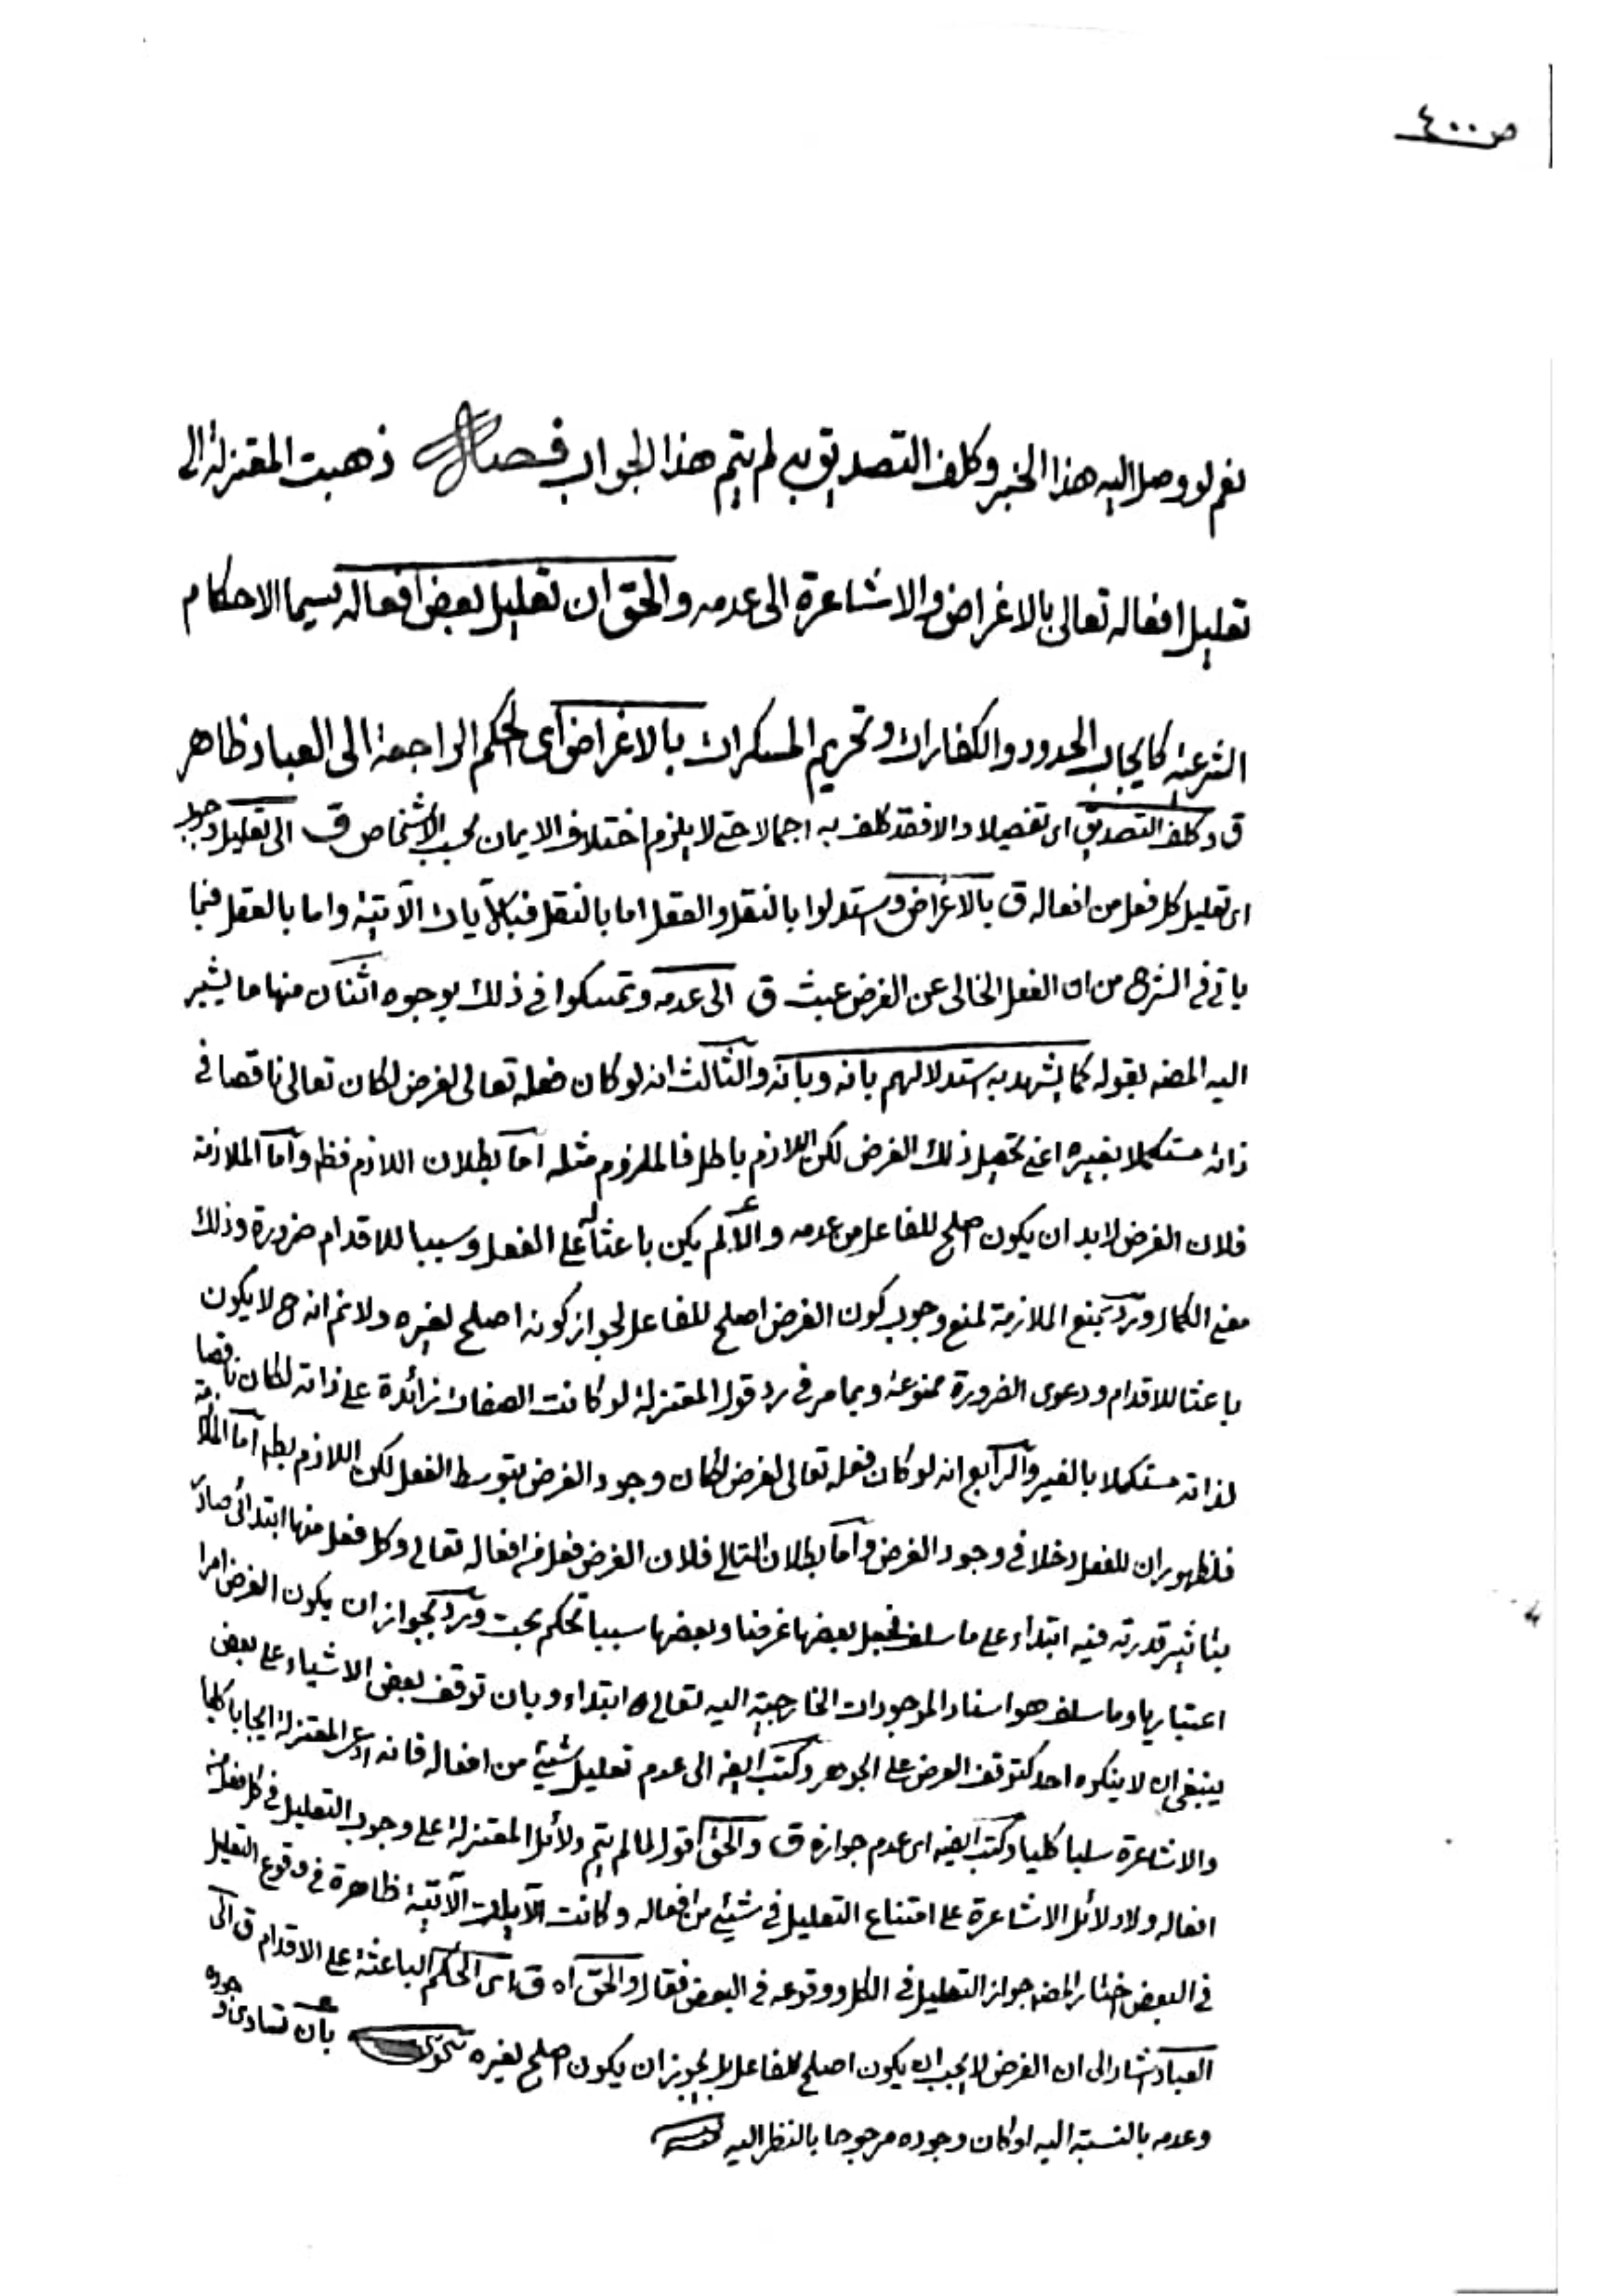 ص ٤٠٠
نعم لو وصل اليه هذا الخبر وكلف التصديق به لم يتم هذا الجواب فصل ذهبت المعتزلة الى
تعليل افعاله تعالى بالاغراض والاشاعرة الى عدمه والحق ان تعليل بعض افعاله سيما الاحكام
الشرعية كايجاب الحدود والكفارات وتحريم المسكرات بالاغراض اى الحكم الراجعة الى العباد ظاهر
ق وكلف التصديق اى تفصيلا والا فقد كلف به اجمالا حتى لا يلزم اختلاف الايمان بحسب الاشخاص ق الى تعليل وجوب
اى تعليل كل فعل من افعاله ق بالاغراض واستدلوا بالنقل والعقل اما بالنقل فبالآيات الآتية واما بالعقل فبما
ياتى فى الشرح من ان الفعل الخالى عن الغرض عبث ق الى عدمه وتمسكوا فى ذلك بوجوه اثنان منها ما يشير
اليه المصنه بقوله كما يشهد به استدلالهم بانه وبانه والثالث انه لو كان فعله تعالى لغرض لكان تعالى ناقصا فى
ذاته مستكملا بغيره اعنى تحصيل ذلك الغرض لكن اللازم باطل فالملزوم مثله اما بطلان اللازم فظ واما الملازمة
فلان الغرض لا بد ان يكون اصلح للفاعل من عدمه والا لم يكن باعثا له على الفعل وسببا للاقدام ضرورة وذلك
معنى الكمال ورد بمنع الملازمة لمنع وجوب كون الغرض اصلح للفاعل لجواز كونه اصلح لغيره ولا نم انه ح لا يكون
باعثا للاقدام ودعوى الضرورة ممنوعة وبما مر فى رد قول المعتزلة لو كانت الصفات زائدة على ذاته لكان ناقصا
لذاته مستكملا بالغير والرابع انه لو كان فعله تعالى لغرض لكان وجود الغرض بتوسط الفعل لكن اللازم بط اما الملازمة
فلظهور ان للفعل دخلا فى وجود الغرض واما بطلان التالى فلان الغرض فعل من افعاله تعالى وكل فعل منها ابتدائى صادر
بتاثير قدرته فيه ابتداء على ما سلف فجعل بعضها غرضا وبعضها سببا تحكم بحت ورد بجواز ان يكون الغرض امرا
اعتباريا وما سلف هو اسناد الموجودات الخارجية اليه تعالى ابتداء وبان توقف بعض الاشياء على بعض
ينبغى ان لا ينكره احد كتوقف العرض على الجوهر وكتب ايضه الى عدم تعليل شيئ من افعاله فانه ادعى المعتزلة ايجابا كليا
والاشاعرة سلبا كليا وكتب ايضه اى عدم جوازه ق والحق اقول لما لم يتم دلائل المعتزلة على وجوب التعليل فى كل فعل من
افعاله ولا دلائل الاشاعرة على امتناع التعليل فى شيئ من افعاله وكانت الآيات الآتية ظاهرة فى وقوع التعليل
فى البعض اختار المصنه جواز التعليل فى الكل ووقوعه فى البعض فقال والحق اه ق اى الحكم الباعثة على الاقدام ق الى
العباد اشار الى ان الغرض لا يجب ان يكون اصلح للفاعل بل يجوز ان يكون اصلح لغيره بان تساوى وجوده
وعدمه بالنسبة اليه او كان وجوده مرجوحا بالنظر اليه